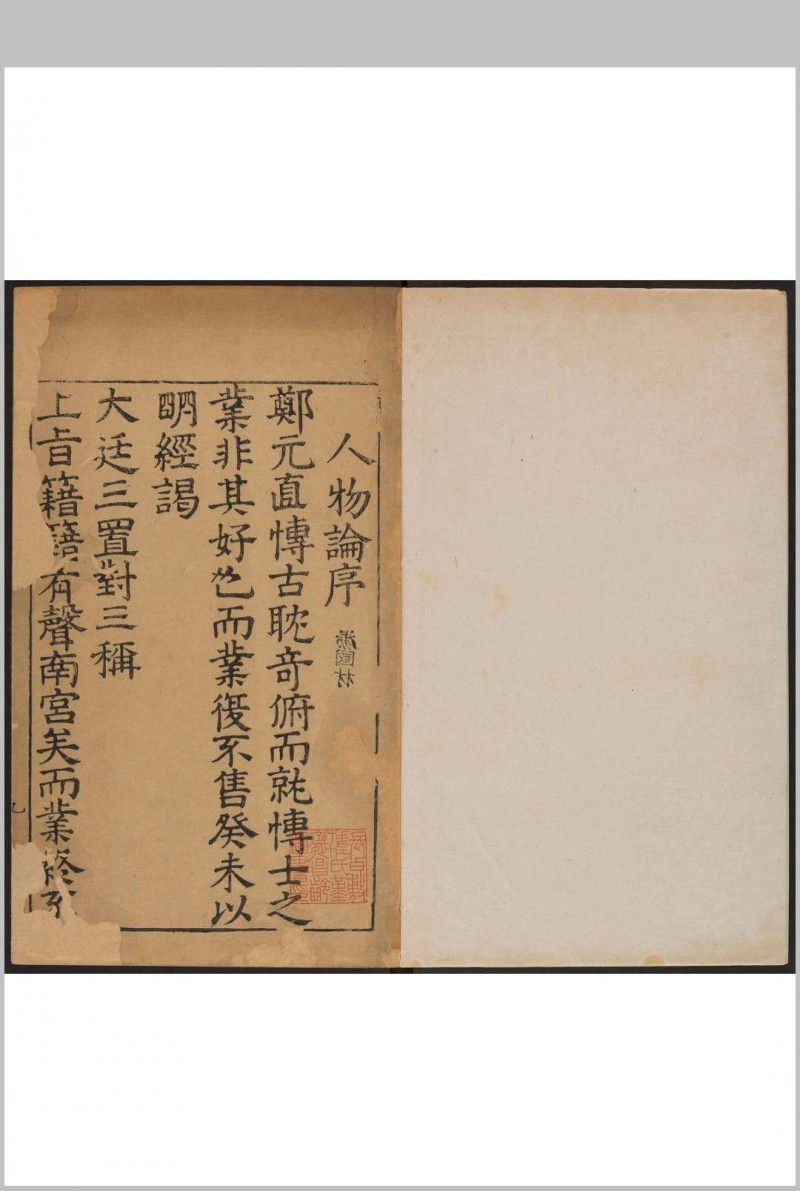 人物論序
鄭元直愽古耽竒俯而就愽士之
業非其好也而業復不售癸未以
明經謁
大廷三置對三稱
上旨籍籍有聲南宮矣而業終不